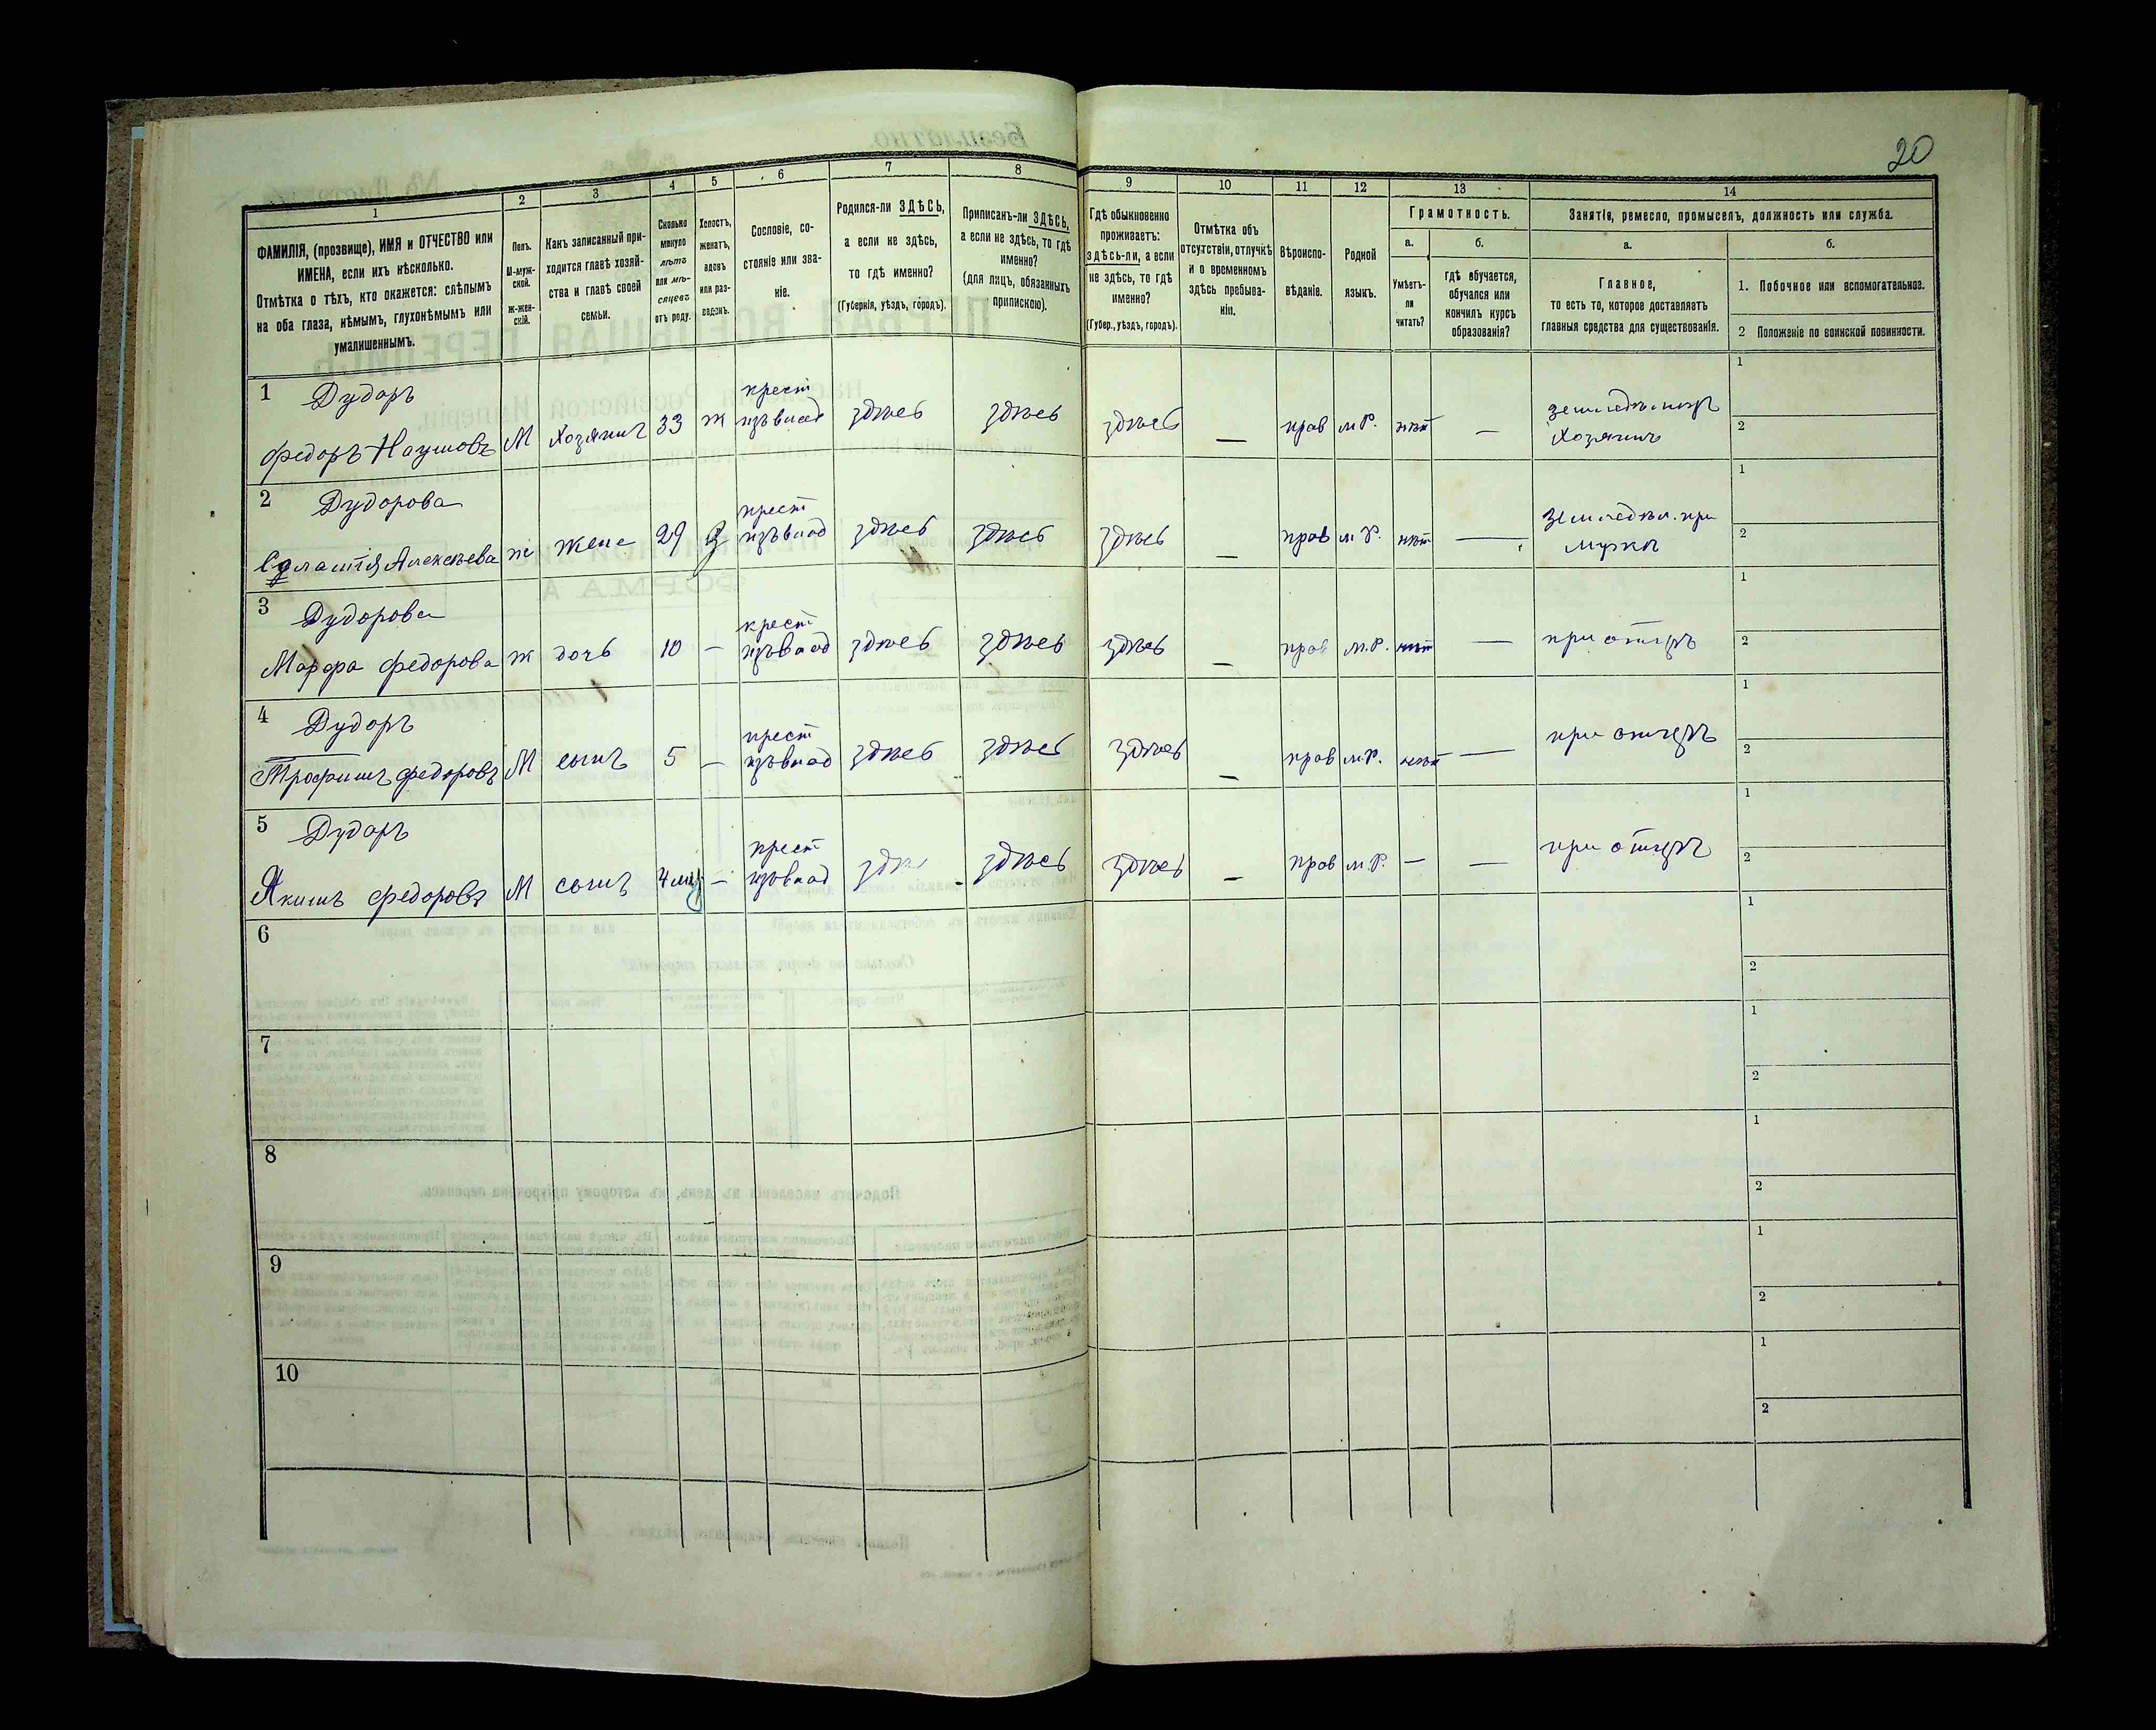 20
1
2
3
4
5
6
7
8
9
10
11
12
13
14
ФАМИЛІЯ, (прозвище), ИМЯ и ОТЧЕСТВО или
ИМЕНА, если ихъ нѣсколько.
Отмѣтка о тѣхъ, кто окажется: слѣпымъ
на оба глаза, нѣмымъ, глухонѣмымъ или
умалишеннымъ.
Полъ.
М-муж-
ской.
Ж-жен-
скій.
Какъ записанный при-
ходится главѣ хозяй-
ства и главѣ своей
семьи.
Сколько
минуло
лѣтъ
или мѣ-
сяцевъ
отъ роду.
Холостъ,
женатъ,
вдовъ
или раз-
веденъ.
Сословіе, со-
стояніе или зва-
ніе.
Родился-ли ЗДѢСЬ,
а если не здѣсь,
то гдѣ именно?
(Губернія, уѣздъ, городъ).
Приписанъ-ли ЗДѢСЬ,
а если не здѣсь, то гдѣ
именно?
(для лицъ, обязанныхъ
припискою).
Гдѣ обыкновенно
проживаетъ:
здѣсь-ли, а если
не здѣсь, то гдѣ
именно?
(Губер., уѣздъ, городъ).
Отмѣтка объ
отсутствіи, отлучкѣ
и о временномъ
здѣсь пребыва-
ніи.
Вѣроиспо-
вѣданіе.
Родной
языкъ.
Грамотность.
а.
Умѣетъ-
ли
читать?
б.
гдѣ обучается,
обучался или
кончилъ курсъ
образованія?
Занятія, ремесло, промыселъ, должность или служба.
а.
Главное,
то есть то, которое доставляетъ
главныя средства для существованія.
б.
1. Побочное или вспомогательное.
2 Положеніе по воинской повинности.
1 Дударъ
Федоръ Наумовъ М Хозяинъ 33 ж крест здѣсь здѣсь здѣсь — прав м.Р. нѣт — Хозяинъ
1
2
2 Дудорова
Алексѣева ж жена 29 З крест здѣсь здѣсь здѣсь — прав м.Р. нѣт — при
1
2
3 Дудорова
Марфа Федорова ж дочь 10 — крест здѣсь здѣсь здѣсь — прав м.Р. нѣт — при отцѣ
1
2
4 Дударъ
Трофимъ Федоровъ М сынъ 5 — крест здѣсь здѣсь здѣсь — прав м.Р. нѣт — при отцѣ
1
2
5 Дударъ
Якимъ Федоровъ М сынъ 4 — крест здѣсь здѣсь — прав м.Р. — — при отцѣ
1
2
6
1
2
7
1
2
8
1
2
9
1
2
10
1
2